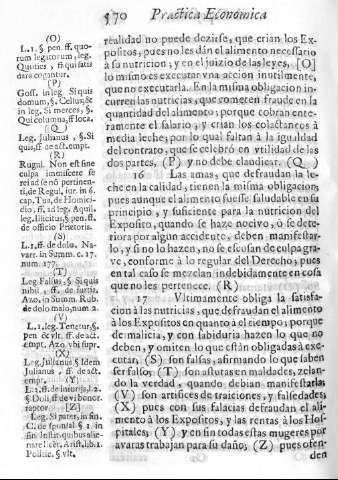 570 Practica Economica
(O)
L. 1. §. pen. ff. quo-
rum legatorum, leg.
Quoties, ff. qui satis
dare cogantur.
(P)
Goss. in leg. Si quis
domum, §. Celius, & in
leg. Si merces, §.
Qui columna, ff. loca.
(Q)
Leg. Julianus, §. Si
quis, ff. de act. empt.
(R)
Rugul. Non est sine
culpa immiscere se
rei ad se nō pertinen-
ti, de Regul. iur. in 6.
cap. Tua, de Homici-
dio, ff. ad leg. Aquil.
leg. Illicitas, §. pen. ff.
de officio Prætoris.
(S)
L. 1. ff. de dolo, Na-
varr. in Summ. c. 17.
num. 177.
(T)
Leg. Falsus, §. Si quis
nihil, ff. de furtis.
Azo, in Summ. Rub.
de dolo malo, num 2.
(V)
L. 1. leg. Tenetur, §.
pen & vlt. ff. de act.
empt. Azo, vbi supr.
(X)
Leg. Julianus § Idem
Julianus, ff. de act.
empt. (Y)
§. Doli, ff. de vi bonor.
raptor. [Z]
Leg. Si pater, in fin.
realidad no puede dezirse, que crian los Ex-
positos, pues no les dàn el alimento necessario
à su nutricion, y en el juizio de las leyes, [O]
lo mismo es executar vna accion inutilmente,
que no executarla. En la misma obligacion in-
curren las nutricias, que cometen fraude en la
quantidad del alimento; porque cobran ente-
ramente el salario, y crian los colactaneos à
media leche; por lo qual faltan à la igualdad
del contrato, que se celebrò en vtilidad de las
dos partes, (P) y no debe claudicar. (Q)
16 Las amas, que defraudan la le-
che en la calidad, tienen la misma obligacion;
pues aunque el alimento fuesse saludable en su
principio, y suficiente para la nutricion del
Exposito, quando se haze nocivo, ò se dete-
riora por algun accidente, deben manifestar-
lo, y si no lo hazen, no se escusan de culpa gra-
ve, conforme à lo regular del Derecho; pues
en tal caso se mezclan indebidamente en cosa
que no les pertenece. (R)
17 Vltimamente obliga la satisfa-
cion à las nutricias, que defraudan el alimento
à los Expositos en quanto à el tiempo; porque
de malicia, y con sabiduria hazen lo que no
deben, y omiten lo que estàn obligadas à exe-
cutar, (S) son falsas, afirmando lo que saben
ser falso; (T) son astutas en maldades, zelan-
do la verdad, quando debian manifestarla;
(V) son artifices de traiciones, y falsedades,
(X) pues con sus falacias defraudan el ali-
mento à los Expositos, y las rentas à los Hos-
pitales; (Y) y en fin todas estas mugeres por
avaras trabajan para su daño; (Z) pues ofen-
den